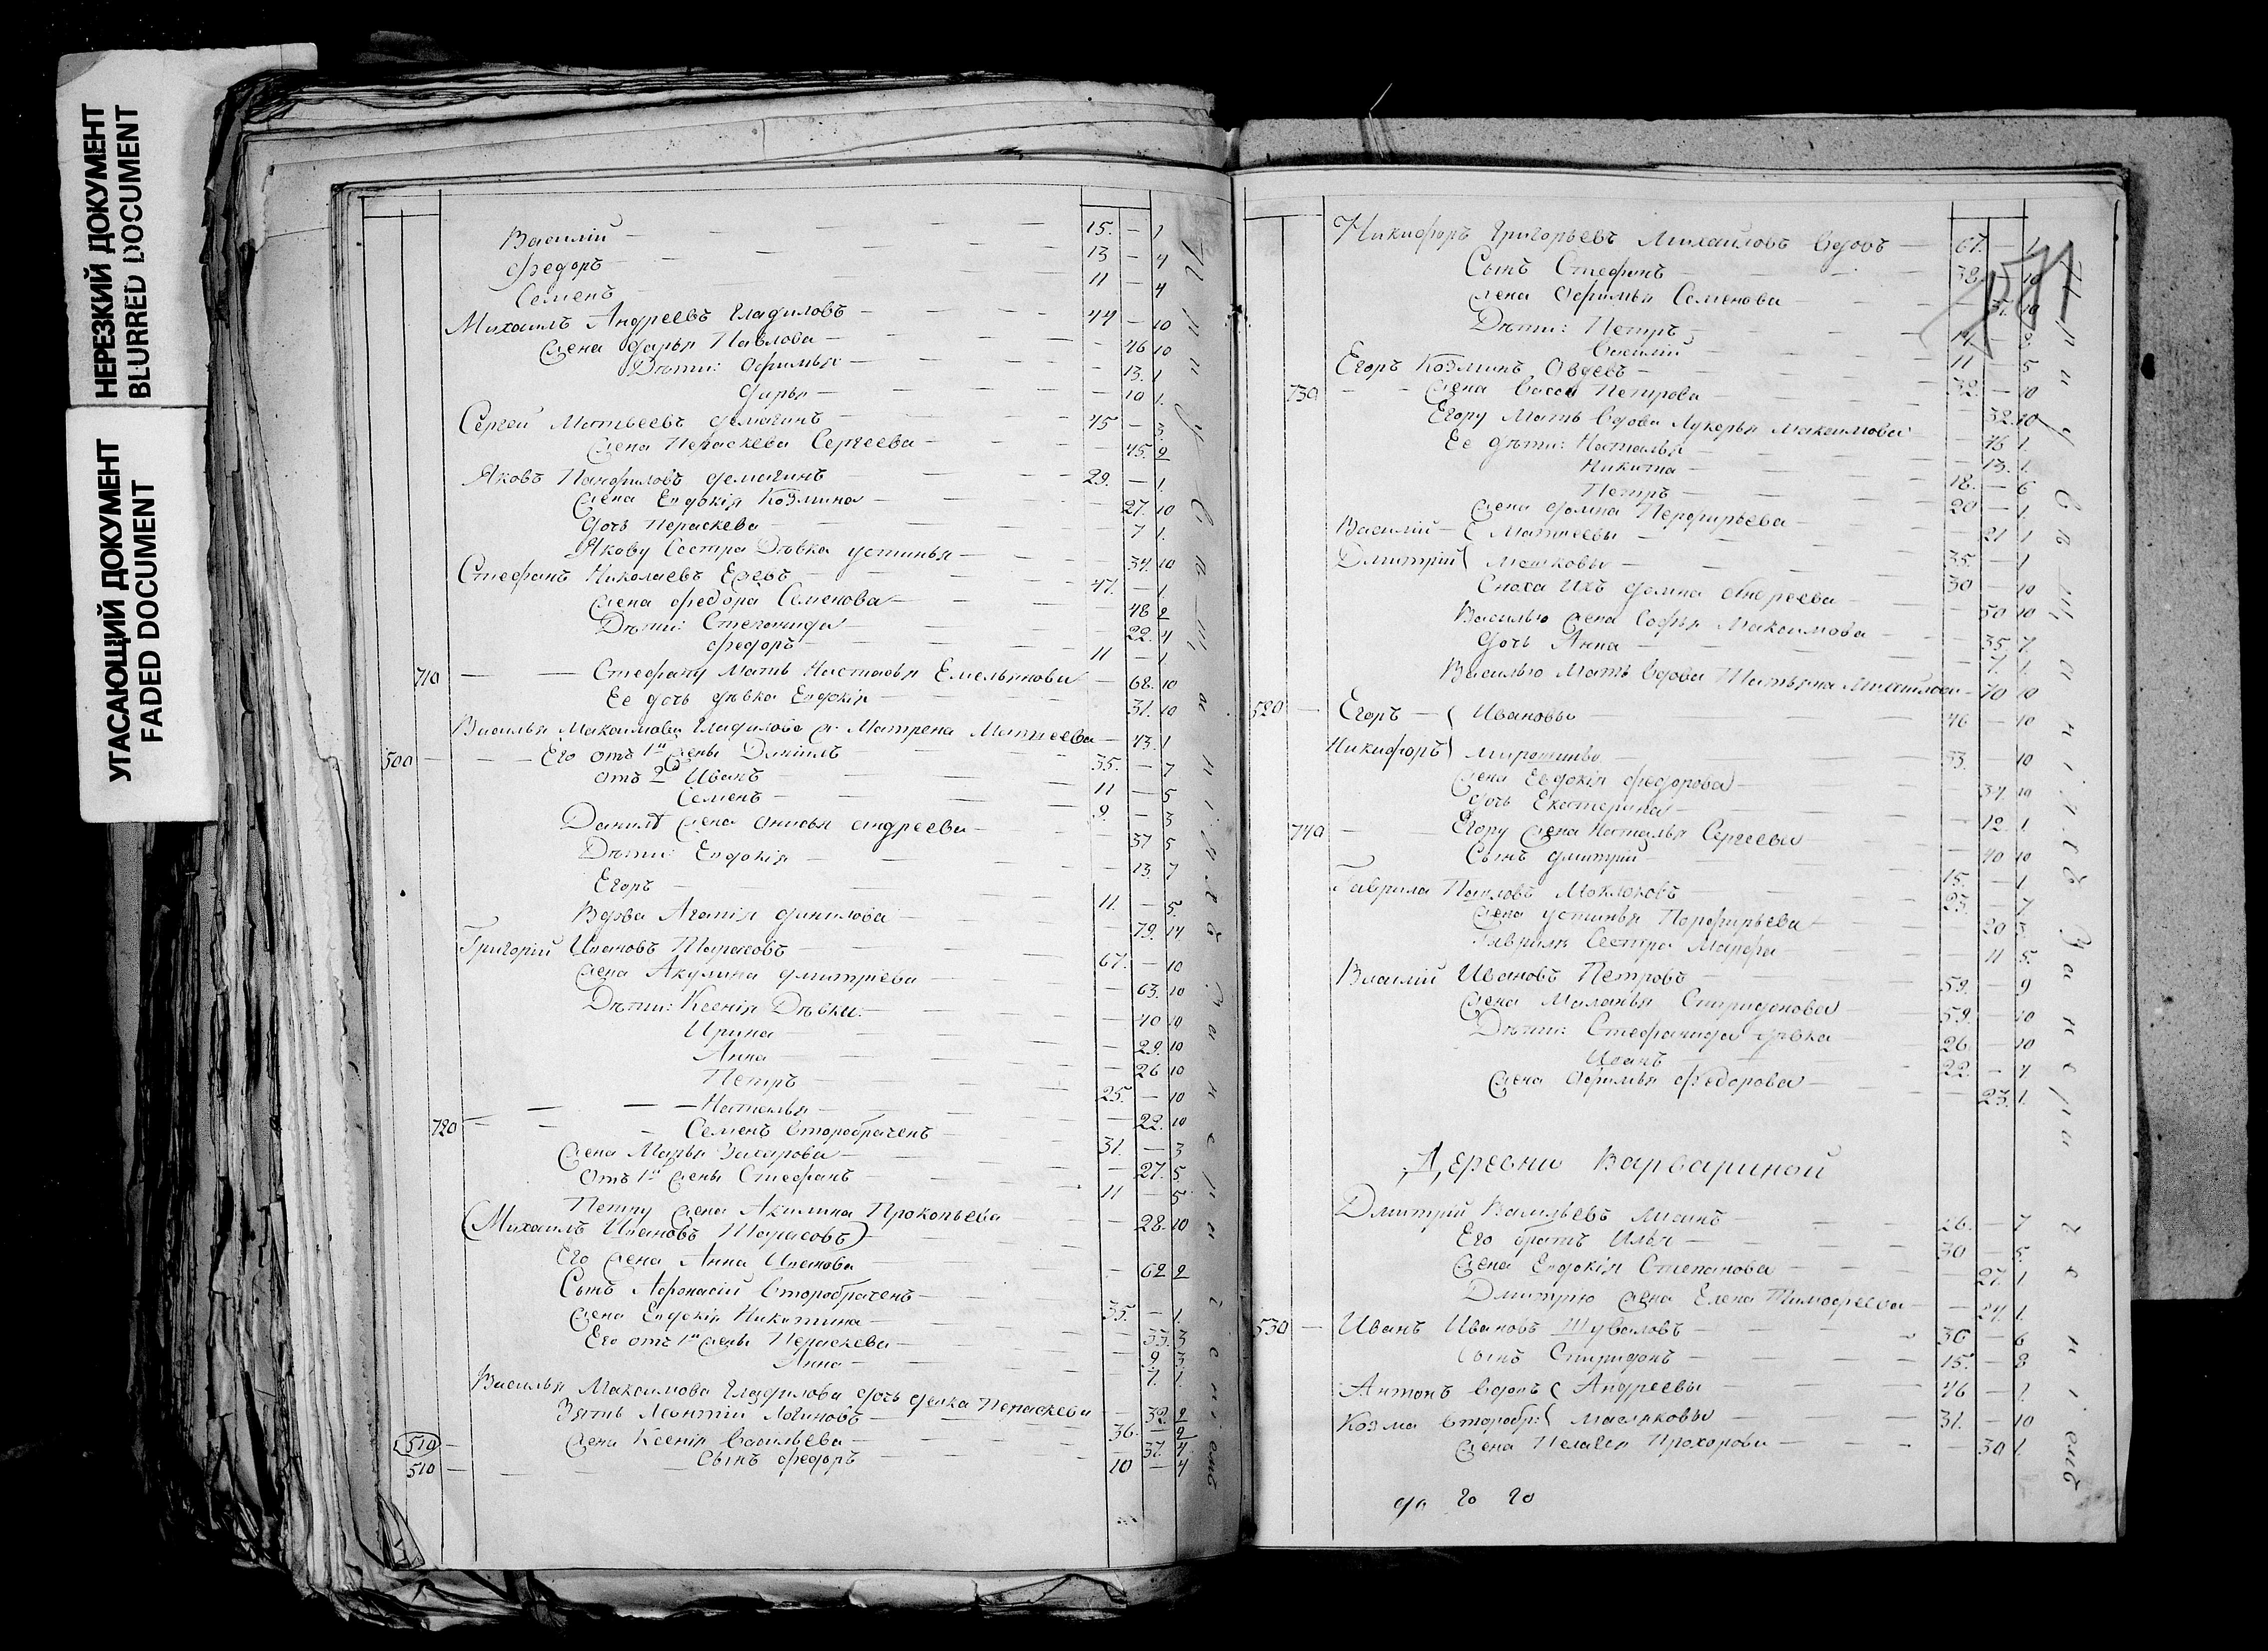 НЕРЕЗКИЙ ДОКУМЕНТ
BLURRED DOCUMENT
УГАСАЮЩИЙ ДОКУМЕНТ
FADED DOCUMENT
Василій — 15. — 1
Федоръ — 13 — 4
Семенъ — 11 — 4
Михаилъ Андреевъ Гладиловъ — 44 — 10
Жена Дарья Павлова — 46 10
Дѣти: Офимья — 13. 1
Дарья — 10 1.
Сергей Матвеевъ — 45 — 3
Жена Параскева Сергеева — 45. 2
Яковъ Панфиловъ — 29. — 1.
Жена Евдокія Козмина — 27. 10
Дочь Пераскева — 7 1.
Якову Сестра Дѣвка Устинья — 34. 10
Стефанъ Николаевъ — 47. — 1.
Жена Федора Семенова — 48 2
Дѣти: Степанида — 22. 4
Федоръ — 11 — 1.
710 — Стефану Мать Настасья Емельянова — 68. 10
Ее дочь дѣвка Евдокія — 31. 10
Василья Максимова Гладилова ж. Матрена Матвеева — 43. 1
500 — Его отъ 1й Жены Даніилъ — 35. — 7
отъ 2й Иванъ — 11 — 5
Семенъ — 9. — 3
Данилѣ Жена Андреева — 37 5
Дѣти: Евдокія — 13. 7
Егоръ — 11. — 5.
Вдова Агапія Данилова — 79. 14
Григорій Ивановъ Тарасовъ — 67. — 10
Жена Акулина Дмитріева — 63. 10
Дѣти: Ксенія Дѣвки: — 40 10
Ирина — 29. 10
Анна — 26 10
Петръ — 25. — 10
Наталья — 22. 10
720 — Семенъ второбраченъ — 31. — 3
Жена Марья Захарова — 27. 5
Отъ 1й Жены Стефанъ — 11 — 5
Петру Жена Акилина Прокопьева — 28. 10
(Михаилъ Ивановъ Тарасовъ)
Его Жена Анна Иванова — 62 2
Сынъ Афонасій второбраченъ — 35. — 1.
Жена Евдокія Никитина — 33. 3
Его отъ 1й Жены Пераскева — 9. 3.
Анна — 7. 1.
Василья Максимова Гладилова дочь Пераскева — 32. 2
Зять Леонтій Логиновъ — 36. — 2
(510) Жена Ксенія Васильева — 37. 4
510 — Сынъ Федоръ — 10 — 4
Никифоръ Григорьевъ Михайловъ вдовъ — 67. — 1
Сынъ Стефанъ — 38. — 10
Жена Офимья Семенова — 37. 10
Дѣти: Петръ — 14. — 8
Василій — 11 — 5
Егоръ Козминъ Овдеевъ — 32. — 10
730 — Жена Васса Петрова — 32. 10
Егору Мать вдова Лукерья Максимова — 46 1.
Ее дѣти: Наталья — 13. 1.
Никита — 18. — 6
Петръ — 20 — 1.
Жена Домна Перфирьева — 21 1
Василій — { Матвеевы — 35. — 1
Дмитрій { Машковы — 30 — 10
Сноха Ихъ Домна Андреева — 50 10
Василью Жена Софья Максимова — 35. 7
Дочь Анна — 7. 1.
Василью Мать вдова Татьяна Михайлова — 70 10
520 — Егоръ — { Ивановы — 46 — 10
Никифоръ } — 33. 10
Жена Евдокія Федорова — 34. 10
Дочь Екатерина — 12. 1
740 — Егору Жена Наталья Сергеева — 40 10
Сынъ Дмитрій — 15. — 1
Гаврила Павловъ Моклоковъ — 23. — 7
Жена Устинья Порфирьева — 20 5.
Гаврилы Сестра Марфа — 11 5.
Василій Ивановъ Петровъ — 59. — 9
Жена Маланья Спиридонова — 59. — 10
Дѣти: Стефанида дѣвка — 26 — 10
Иванъ — 22. — 4
Жена Офимья Федорова — 23. 1.
Деревни Варвариной
Дмитрій Васильевъ — 26. — 7
Его братъ Илья — 30 — 5.
Жена Евдокія Степанова — 27. 1
Дмитрію Жена Елена Тимофеева — 24 1.
530 — Иванъ Ивановъ Шуваловъ — 36 — 6
Сынъ Спиридонъ — 15. — 8
Антонъ вдовъ { Андреевы — 46 — 1.
Козма второбр: { Масляковы — 31. — 10
Жена Пелагея Прохорова — 30 1.